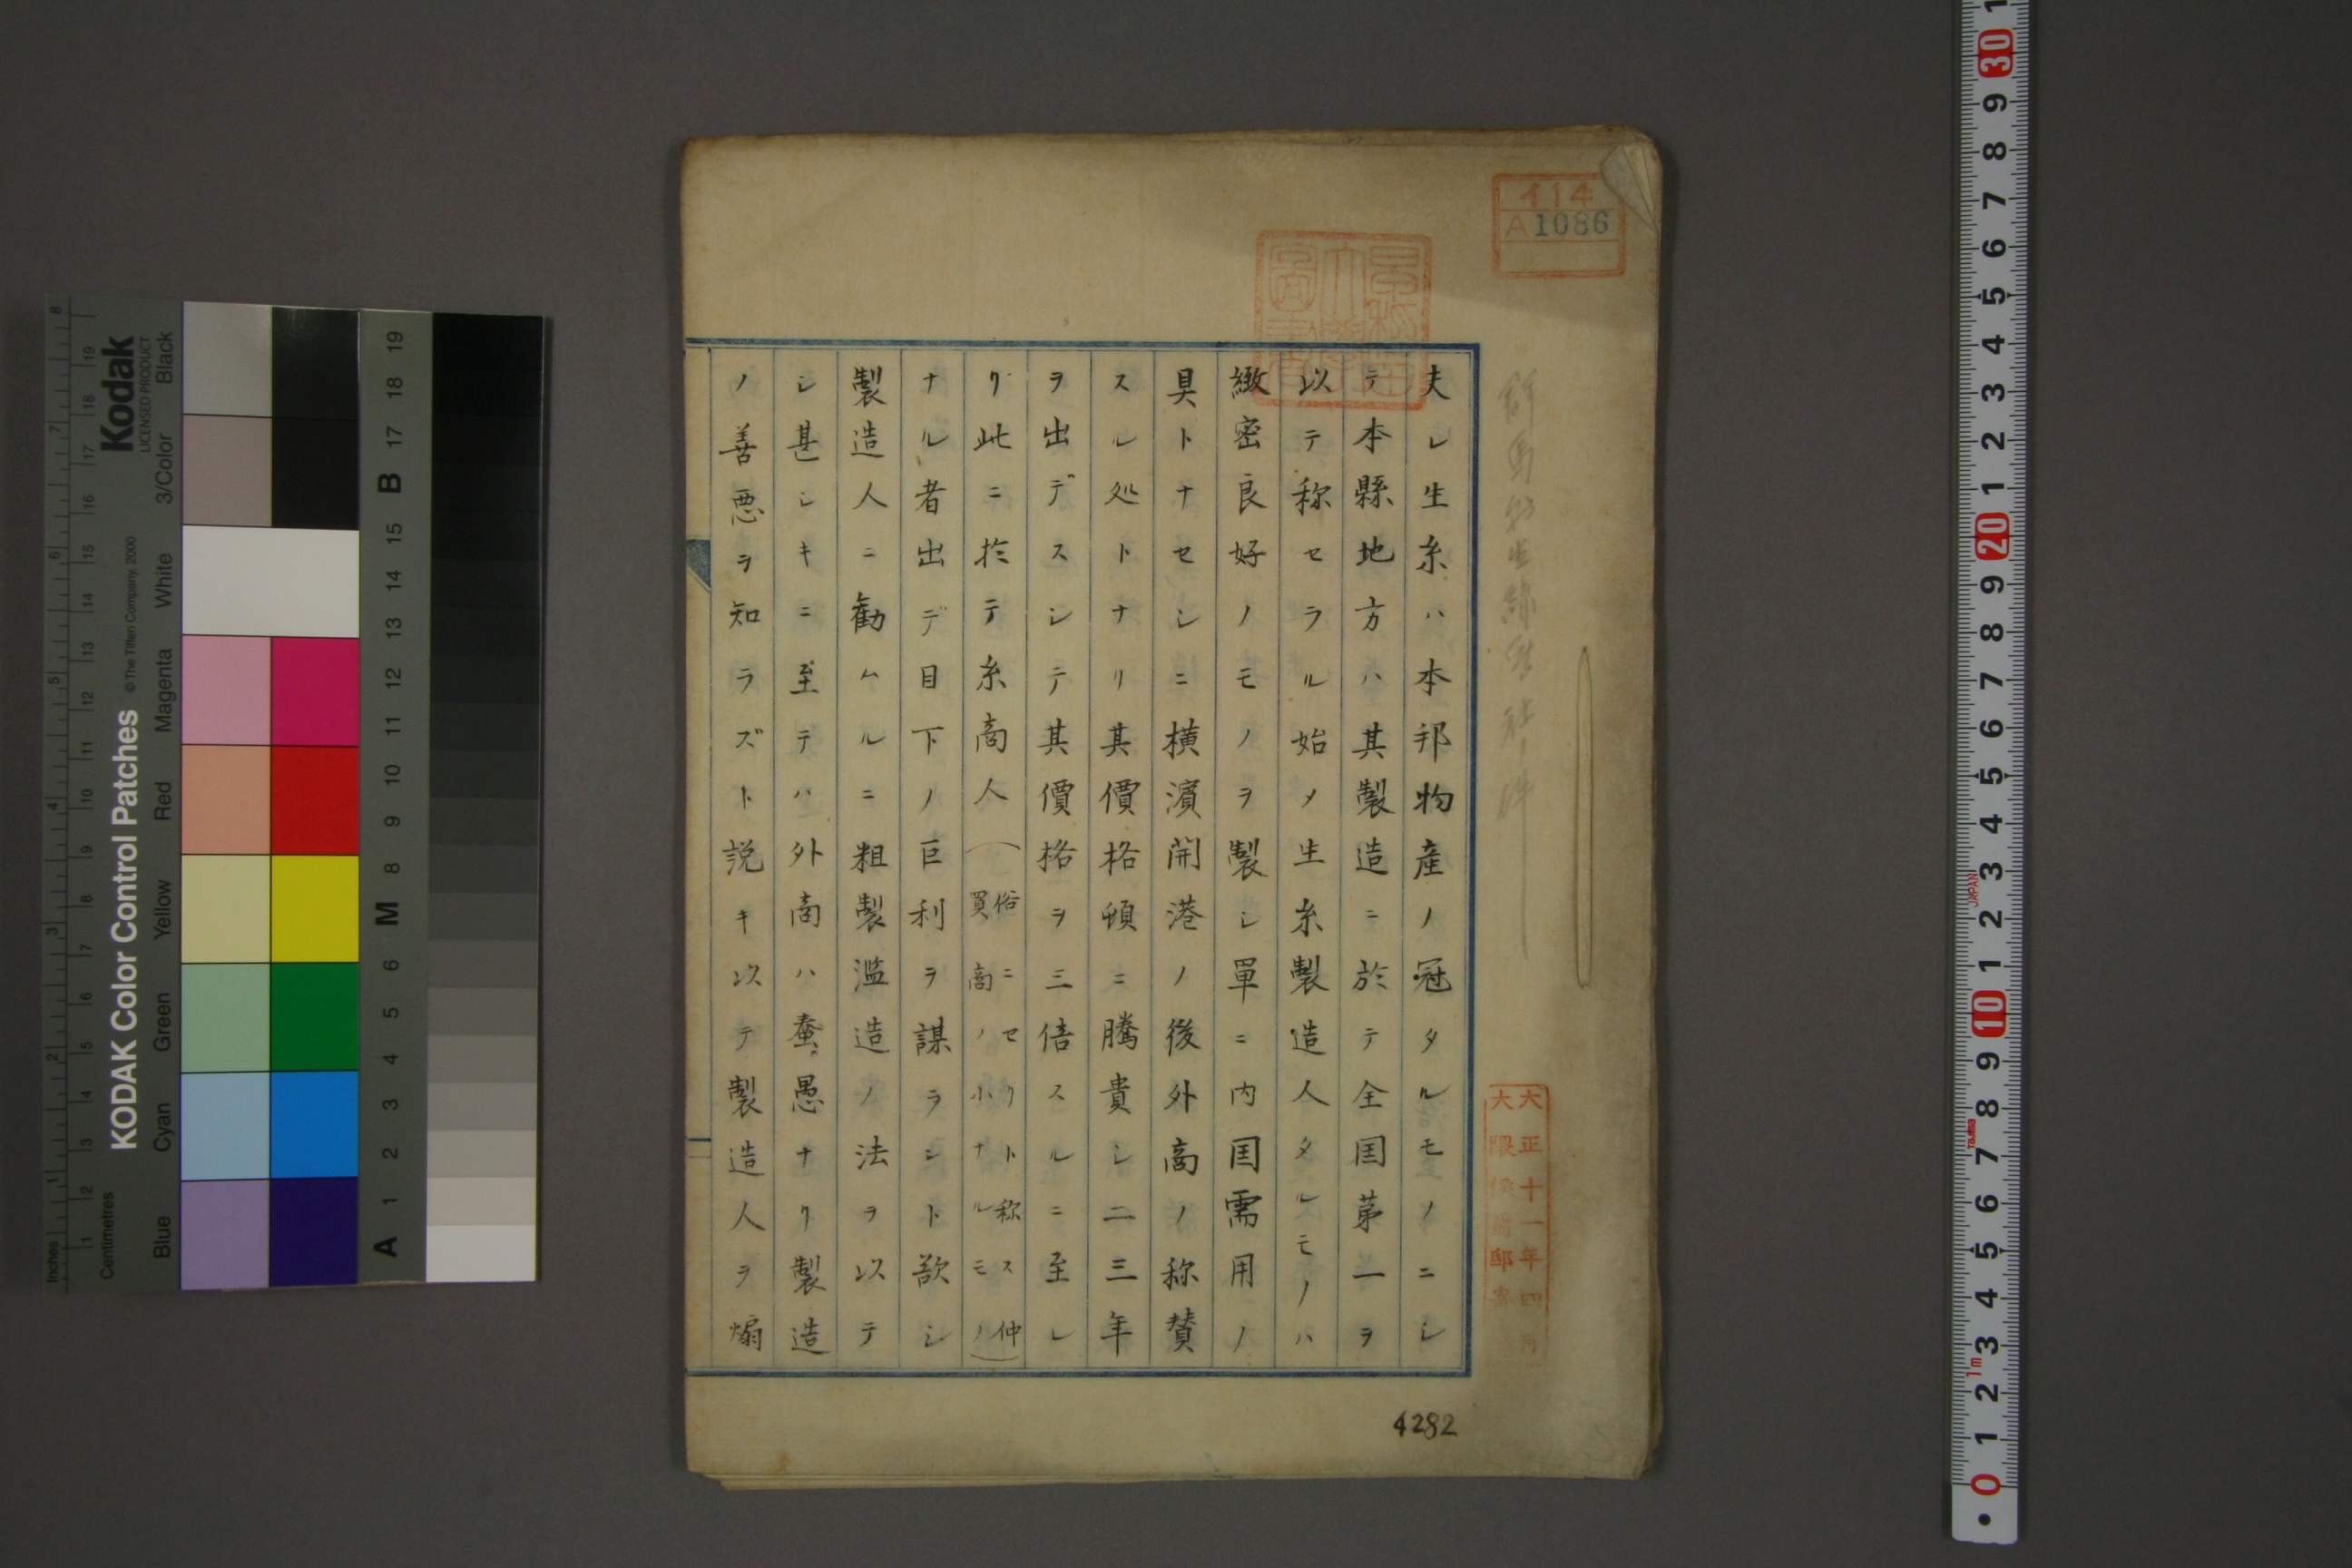 イ14
A1086
早稲田大學圖書
大正十一年四月
夫レ生糸ハ本邦物産ノ冠タルモノニシ
テ本縣地方ハ其製造ニ於テ全国第一ヲ
以テ称セラル始メ生糸製造人タルモノハ
緻密良好ノモノヲ製シ單ニ内国需用ノ
具トナセシニ横濱開港ノ後外商ノ称賛
スル処トナリ其價格頓ニ騰貴シ二三年
ヲ出デズシテ其價格ヲ三倍スルニ至レ
リ此ニ於テ糸商人(俗ニセリト称ス仲
買商ノ小ナルモノ)
ナル者出デ目下ノ巨利ヲ謀ラント欲シ
製造人ニ勧ムルニ粗製濫造ノ法ヲ以テ
シ甚シキニ至テハ外商ハ蚕愚ナリ製造
ノ善悪ヲ知ラズト説キ以テ製造人ヲ煽
4282
KODAK Color Control Patches
© The Tiffen Company, 2000
Kodak
LICENSED PRODUCT
Inches
Centimetres
Blue
Cyan
Green
Yellow
Red
Magenta
White
3/Color
Black
A 1 2 3 4 5 6 M 8 9 10 11 12 13 14 15 B 17 18 19
JAPAN